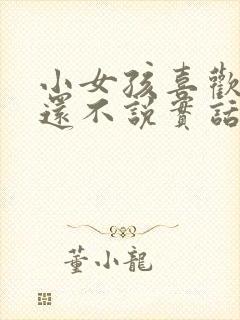 小女孩喜歡
還不說實話
董小龍